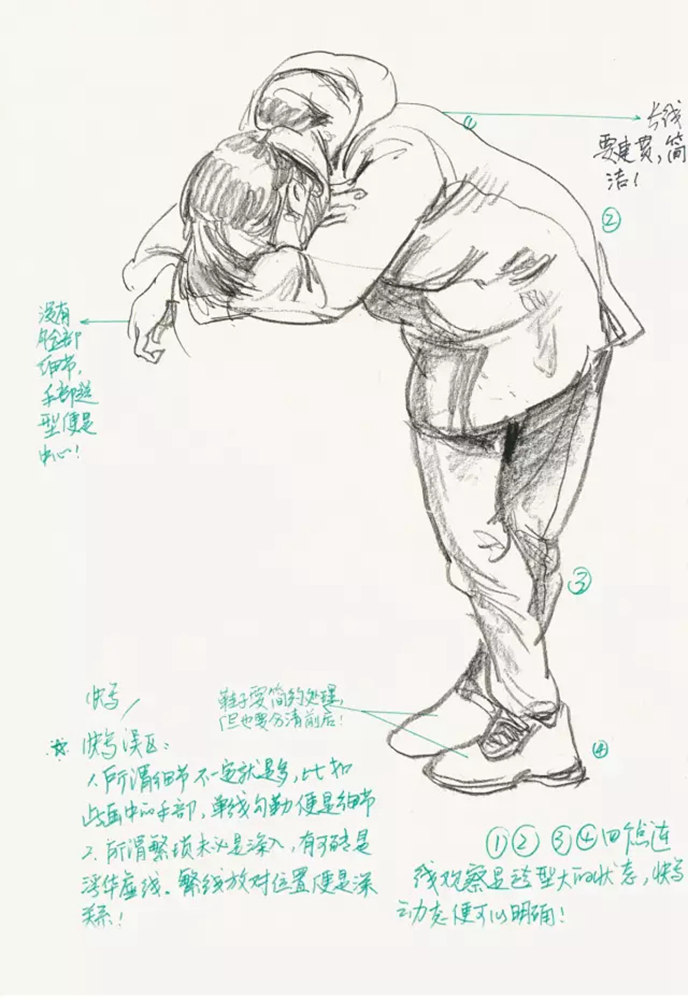 长线
要连贯,简
洁!
①
②
没有
脸部
细节,
手部造
型便是
中心!
③
快写/
鞋子要简约处理,
但也要分清前后!
④
☆ 快写误区:
1.所谓细节不一定就是多,比如
此画中的手部,单线勾勒便是细节
2.所谓繁琐未必是深入,有可能是
浮华虚线。繁线放对位置便是深
①② ③④四个点连
线观察是造型大的状态,快写
动态便可以明确!